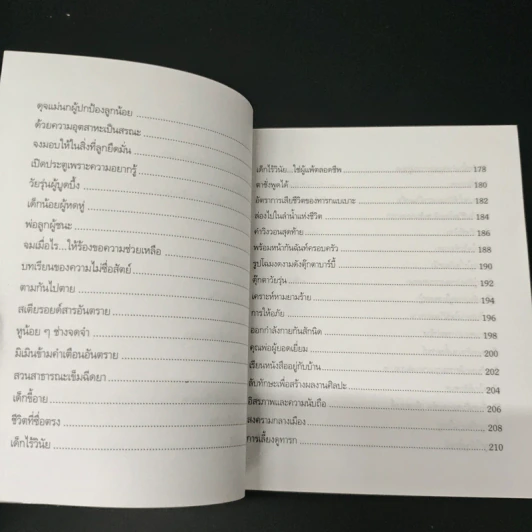 ดุจแม่นกผู้ปกป้องลูกน้อย
ด้วยความอุตสาหะเป็นสรณะ
จงมอบให้ในสิ่งที่ลูกยึดมั่น
เปิดประตูเพราะความอยากรู้
วัยรุ่นผู้บูดบึ้ง
เด็กน้อยผู้หดหู่
พ่อลูกผู้ชนะ
จมเมื่อไร...ให้ร้องขอความช่วยเหลือ
บทเรียนของความไม่ซื่อสัตย์
ตามกันไปตาย
สเตียรอยด์สารอันตราย
หูน้อย ๆ ช่างจดจำ
มิเมินข้ามคำเตือนอันตราย
สวนสาธารณะเข็มฉีดยา
เด็กขี้อาย
ชีวิตที่ซื่อตรง
เด็กไร้วินัย
เด็กไร้วินัย...ใช่ผู้แพ้ตลอดชีพ 178
ตาชั่งพูดได้ 180
อัตราการเสียชีวิตของทารกแบเบาะ 182
ล่องไปในลำน้ำแห่งชีวิต 184
คำวิงวอนสุดท้าย 186
พร้อมหน้ากันฉันท์ครอบครัว 188
รูปโฉมงดงามดังตุ๊กตาบาร์บี้ 190
ตุ๊กตาวัยรุ่น 192
เคราะห์หามยามร้าย 194
การให้อภัย 196
ออกกำลังกายกันสักนิด 198
คุณพ่อผู้ยอดเยี่ยม 200
เรียนหนังสืออยู่กับบ้าน 202
ลับทักษะเพื่อสร้างผลงานศิลปะ 204
อิสรภาพและความนับถือ 206
สงครามกลางเมือง 208
การเลี้ยงดูทารก 210